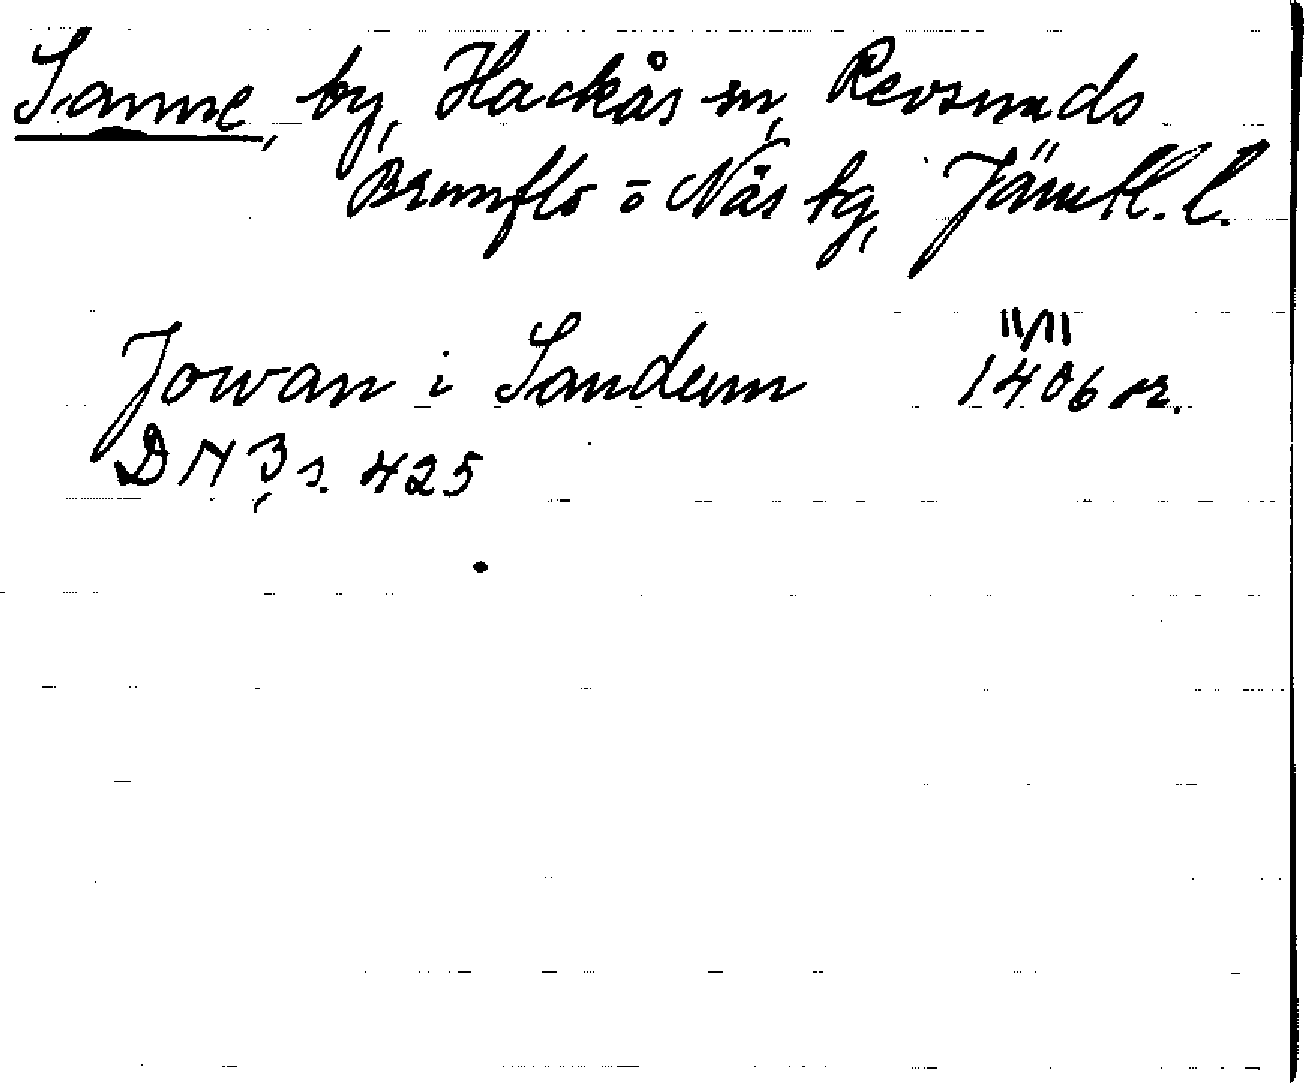 Sanne, by, Hackås sn, Revsunds
Brunflo o Näs tg, Jämtl. l.
Jowan i Sandem 11/11
1406 or.
DN 3, s. 425